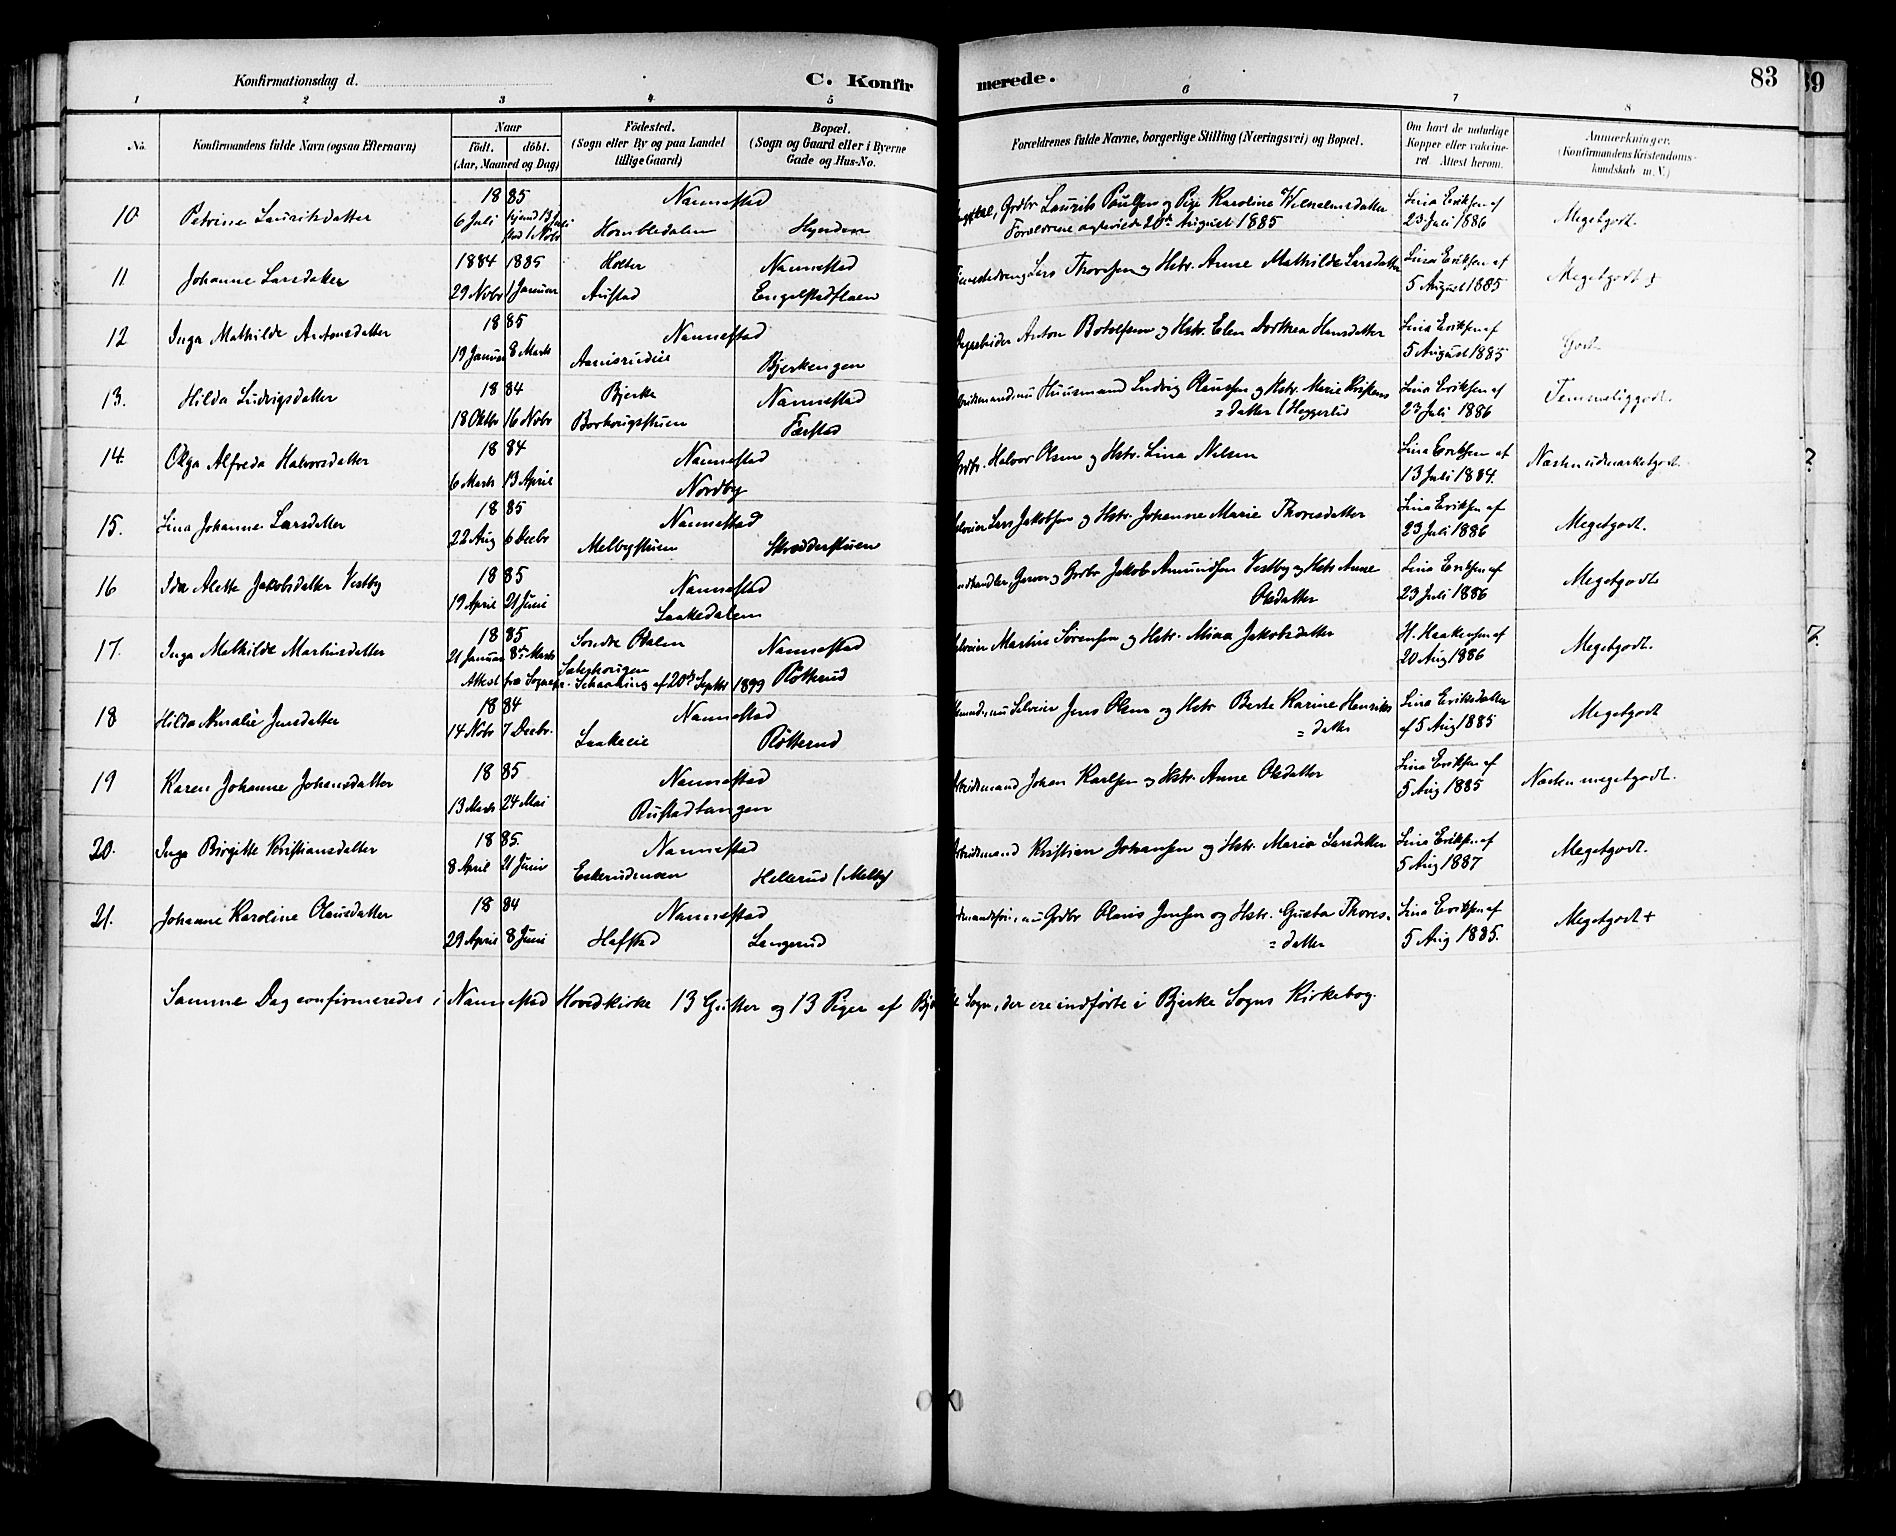 Konfirmationsdag d.
C. Konfirmerede.
83
1 2 3 4 5 6 7 8
No. Konfirmandens fulde Navn (ogsaa Efternavn) Naar Født. døbt. (Aar, Maaned og Dag) Fødested. (Sogn eller By og paa Landet tillige Gaard) Bopæl. (Sogn og Gaard eller i Byerne Gade og Hus-No. Forældrenes fulde Navne, borgerlige Stilling (Næringsvei) og Bopæl. Om havt de naturlige Kopper eller vaccineret Attest herom. Anmærkninger. (Konfirmandens Kristendomskundskab m. V.)
1885 Nannestad Grdbr Laurits Paulsen og Pige Karoline Wilhelmsdatter Lina Eriksen af
10 Petrine Lauritsdatter 6 Juli Hornbledalen Forældrene ægteviede 20de August 1885 23 Juli 1886 Megetgodt.
1884 1885 Holter Nannestad Lars Thoresen og Hstr. Anne Mathilde Larsdatter Lina Eriksen af
11 Johanne Larsdatter 29 Novbr 1 Januar Austad Engelstadflaen 5 August 1885 Megetgodt +
1885 Nannestad Anton Botolfsen og Hstr. Elen Dorthea Hansdatter Lina Eriksen af
12 Inga Mathilde Antonsdatter 19 Januar 8 Marts Bjerkengen 5 August 1885 Godt
1884 Bjerke Nannestad nu Huusmand Ludvig Olaussen og Hstr. Marie Kristens Lina Eriksen af
13. Hilda Ludvigsdatter 18 Oktbr 16 Novbr = datter 23 Juli 1886 Temmeliggodt.
1884 Nannestad Halvor Olsen og Hstr. Lina Nilsen Lina Eriksen af
14. Olga Alfreda Halvorsdatter 6 Marts 13 April Nordby 13 Juli 1884. Næstenudmærketgodt.
1885 Nannestad Lars Jakobsen og Hstr. Johanne Marie Thoresdatter Lina Eriksen af
15. Lina Johanne Larsdatter 22 Aug 6 Decbr Melbystuen Skrædderstuen 23 Juli 1886 Megetgodt.
1885 Nannestad Grdbr Jakob Amundsen Vestby og Hstr Anne Lina Eriksen af
16 Ida Alette Jakobsdatter Vestby 19 April 21 Juni Laakedalen Olsdatter 23 Juli 1886 Megetgodt
1885 Søndre Odalen Nannestad Selveier Martin Sørensen og Hstr. Mina Jakobsdatter H. Haakensen af
17. Inga Mathilde Martinsdatter 21 Januar 8de Marts Røtterud 20 Aug 1886 Megetgodt.
Attest fra Sognepr. Schaaning af 20de Septbr 1899
1884 Nannestad nu Selveier Jens Olsen og Hstr Berte Karine Henriks Lina Eriksdatter
18 Hilda Amalie Jensdatter 14 Nobr 7 Decbr. Laakeeie Røtterud = datter af 5 Aug 1885 Megetgodt
1885 Nannestad Arbeidsmand Johan Karlsen og Hstr. Anne Olsdatter Lina Eriksen af
19 Karen Johanne Johansdatter 13 Marts 24 Mai Rustadtangen 5 Aug 1885 Næsten megetgodt.
1885. Nannestad Arbeidsmand Kristian Johansen og Hstr. Maria Larsdatter Lina Eriksen af
20. Inga Birgitte Kristiansdatter 8 April 21 Juni Hellerud (Melby 5 Aug 1887 Megetgodt.
1884 Nannestad nu Grdbr Olaus Jensen og Hstr. Gusta Thores- Lina Eriksen af
21. Johanne Karoline Olausdatter 29 April 8 Juni Hafstad Langerud = datter 5 Aug 1885. Megetgodt +
Samme Dag confirmeredes i Nannestad Hovedkirke 13 Gutter og 13 Piger af Bjerke Sogn, der ere indførte i Bjerke Sogns Kirkebog.